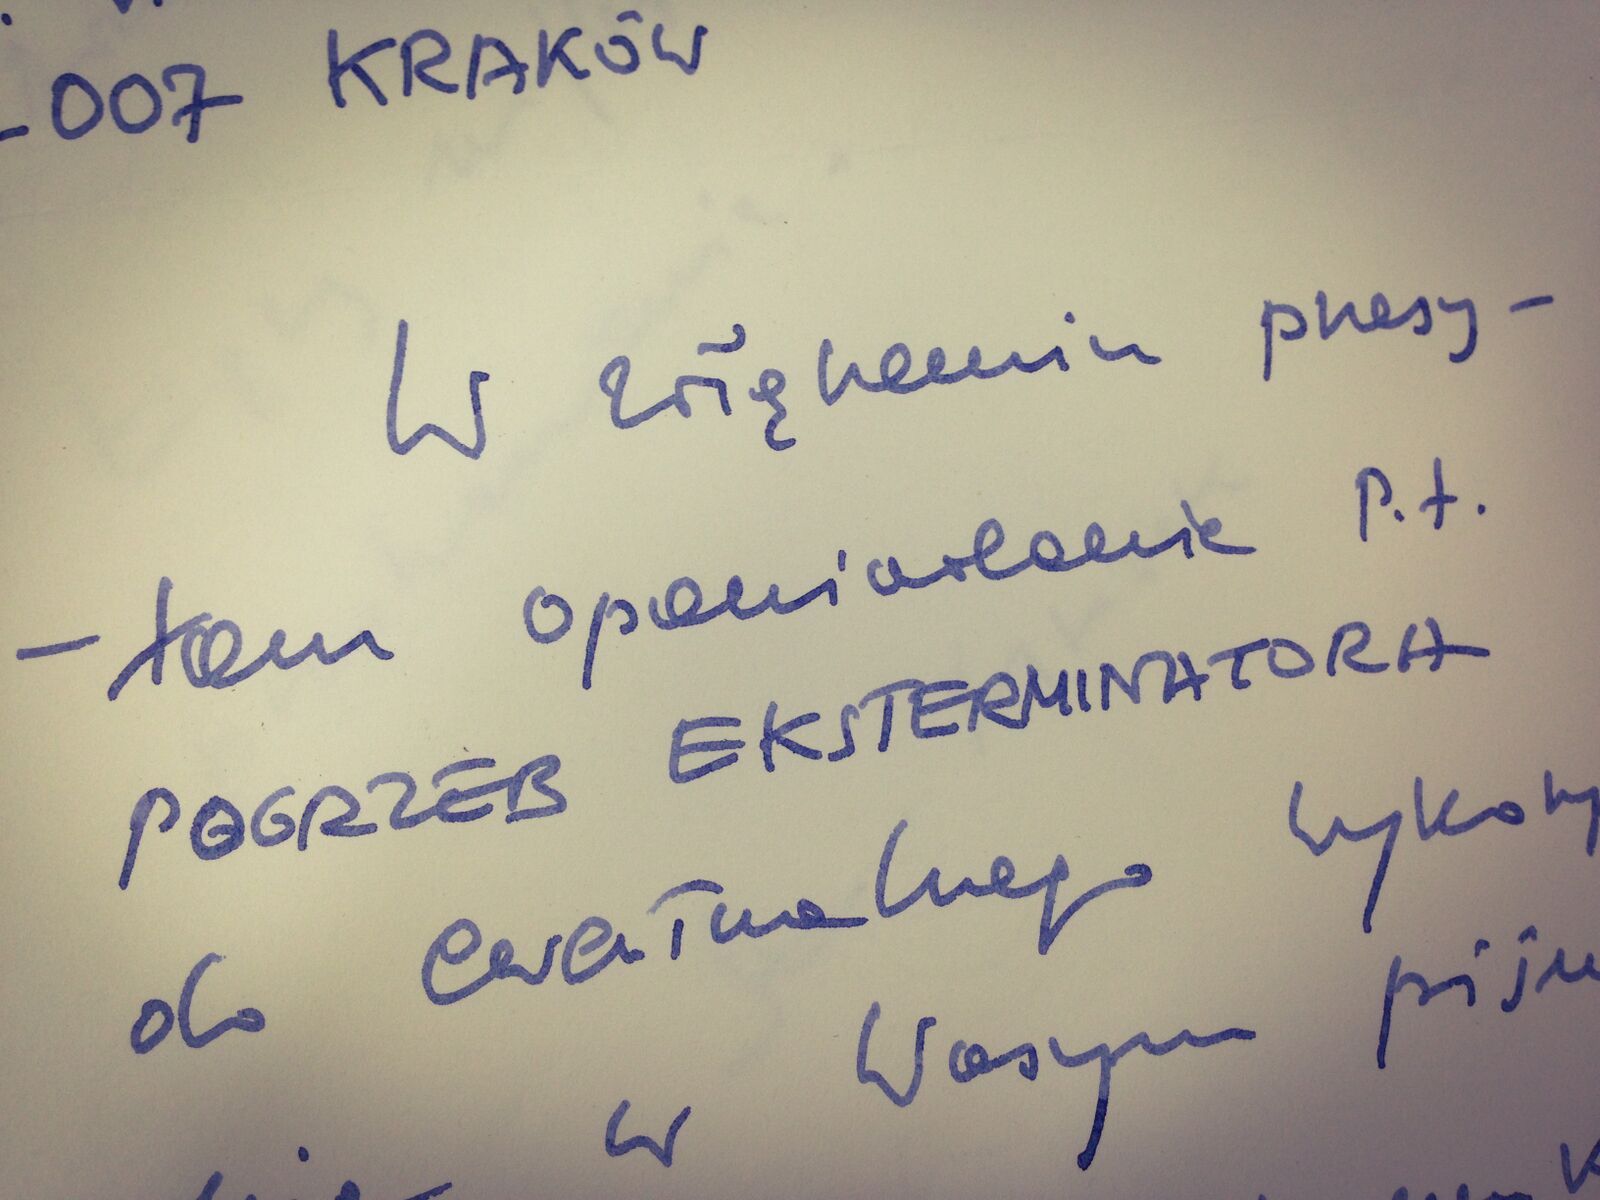 -007 KRAKÓW
W załączeniu przesy-
-łam opowiadanie p.t.
POGRZEB EKSTERMINATORA
do ewentualnego
w Waszym